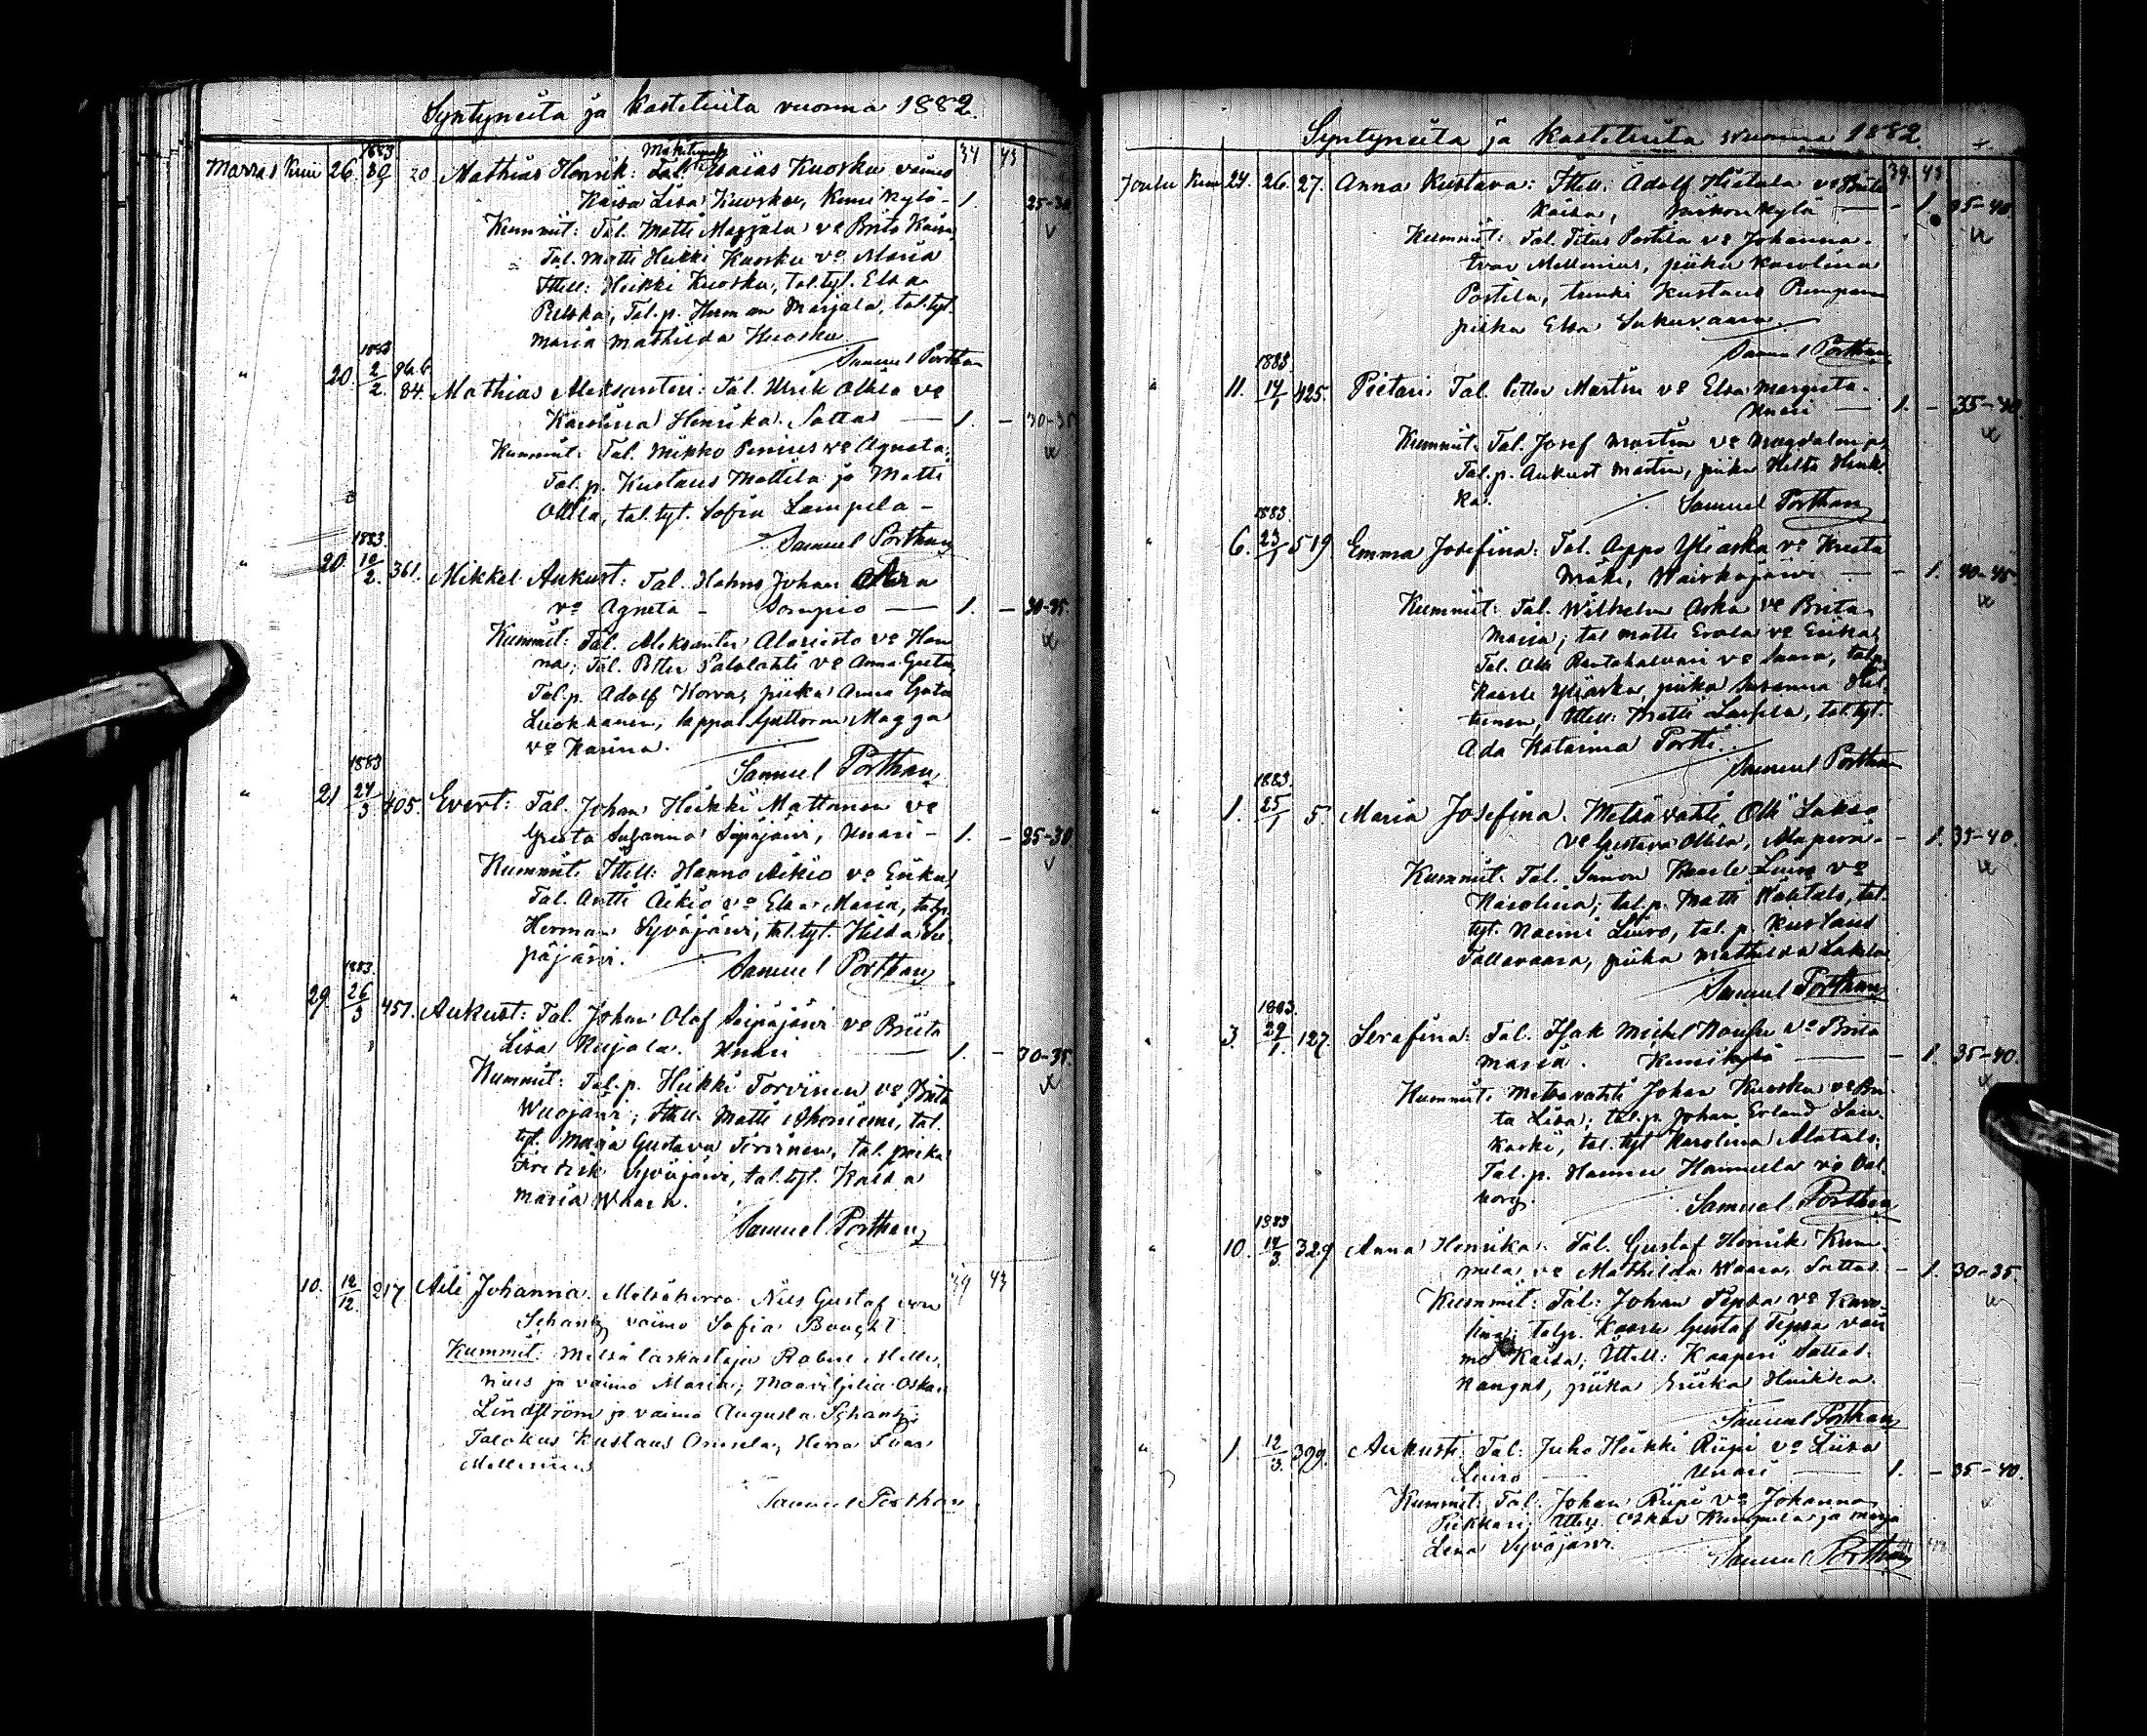 Syntyneitä ja Kastetuita vuonna 1882.
1883. Mäkitupal. 34 43
Marras Kuu 26. 20 Mathias Henrik: Tal. Esaias Kuosku vaimo
Kaisa Lisa Kuosku, Kemikylä - 1. 25-30
Kummit: Tal. Matti Marjala vo Brita Kaisa
Tal. Matti Heikki Kuosku vo Maria
Ittell: Heikki Kuosku, tal.tyt. Elsa
Tal.p. Herman Marjala, tal.tyt.
Maria Mathilda Kuosku
Samuel Porthan
1883
" 20. 2/2. 84. Mathias Aleksanteri: Tal. Ulrik Ollila vo
Karolina Henrika. Sattas — 1. - 30-35
Kummit: Tal. Mikko Penius vo Agneta.
Tal.p. Kustaus Mattila ja Matti
Ollila, tal.tyt. Sofia Lampela -
Samuel Porthan
1883.
" 20. 10/2. 361. Mikkel Aukust: Tal. Hannu Johan
vo Agneta - Sompio — 1. - 30-35.
Kummit: Tal. Aleksanter Alariesto vo Han
na; Tal. Petter Salolahti vo Anna Greta,
Tal.p. Adolf Horva, piika Anna Greta
Luokkanen, lappal. Guttorm Magga
vo Karina.
Samuel Porthan
1883
" 21 24/3 405. Evert: Tal. Johan Heikki Mattanen vo
Greta Susanna Siepäjärvi, Unari - 1. - 25-30
Kummit: Ittell: Hannu Aikio vo Erika,
Tal. Antti Aikio vo Elsa Maria, tal.p.
Herman Syväjärvi, tal.tyt. Hilda Sie
päjärvi.
Samuel Porthan
1883.
" 29. 26/3 457. Aukust: Tal. Johan Olof Seipäjärvi vo Briita
Lisa Kujala. Unari — 1. - 30-35.
Kummit: Tal.p. Heikki Torvinen vo Brita
Wuojärvi; Ittell. Matti Ahoniemi, tal.
tyt. Maria Gustava Torvinen, tal. poika
Fredrik Syväjärvi, tal.tyt. Kaisa
Maria
Samuel Porthan
10. 12/12. 217 Aili Johanna. Metsäherra Nils Gustaf von 39 43
Schantz vaimo Sofia Bought
Kummit: Metsälaskastaja Robert Melle
nius ja vaimo Maria; Maaviljeliä Oskar
Lindström ja vaimo Augusta Schantz;
Talokas Kustaus Onnela, Herra
Mellenius
Samuel Porthan
Syntyneitä ja Kastetuita vuonna 1882.
39. 43.
Joulu Kuu 24. 26. 27. Anna Kustava: Ittell: Adolf Hietala vo Briita
Kaisa, — - 1. 35-40.
Kummit: Tal. Titus Postila vo Johanna.
Ivar Mellenius, piika Karolina
Postila, renki Kustaus Rumpanen
piika Elsa Sukuvaara.
Samuel Porthan
1883.
" 11. 14/1 425. Pietari Tal. Petter Martin vo Elsa Margreta.
Unari — 1. - 35-40
Kummit: Tal. Josef Martin vo Magdalena,
Tal.p. Aukust Martin, piika
ka.
Samuel Porthan
1883.
" 6. 23/1 519. Emma Josefina: Tal. Aappo Yliaska vo Kreeta
Mäki, Waiskojärvi — - 1. 40-45
Kummit: Tal. Wilhelm Aska vo Brita
Maria; tal. Matti Erola vo Erika
Tal. Olli Rantahalvari vo Saara, tal.p.
Kaarle Yliaska, piika Susanna Hal
tunen, Ittell: Matti Laurila, tal.tyt.
Ada Katarina Portti.
Samuel Porthan
1883.
" 1. 25/1 5. Maria Josefina. Metsävahti Olli Lakso
vo Gustava Ollila, Alaperä - 1. 35-40.
Kummit: Tal. Simon Kaarle Luiro vo
Karolina; tal.p. Matti tal.
tyt. Naimi Luiro, tal.p. Kustaus
Tallavaara, piika Mathilda Lakela
Samuel Porthan
1883.
" 3. 29/1. 127. Serafina: Tal. Isak Michel vo Brita
Maria. Kemikylä — 1. 35-40.
Kummit: Metsävahti Johan Kuosku vo Bri
ta Lisa; tal.p. Johan Erland Sau
koski, tal.tyt. Karolina Alatalo.
Tal.p. Hannu Hannula vo Val
borg.
Samuel Porthan
1883
" 10. 14/3. 329 Anna Henrika. Tal. Gustaf Henrik Kum
pula vo Mathilda Waara, Sattas - 1. 30-35.
Kummit: Tal: Johan Tepsa vo Karo
lina; tal.p. Kaarle Gustaf Tepsa vai
mo Kaisa; Ittell: Kaaperi Sattas
kangas, piika Eriika Huikka.
Samuel Porthan
" 1. 12/3. 399. Aukusti: Tal: Juho Heikki Riipi vo Liisa
Luiro — Unari — 1. - 35-40.
Kummit: Tal: Johan Riipi vo Johanna
Pekkari; Ittell. Oskar Kumpula ja Marja
Lena Syväjärvi.
Samuel Porthan